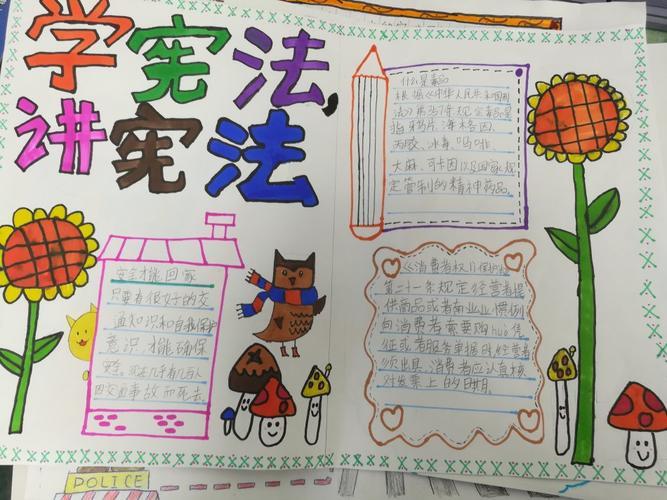 学宪法,
讲宪法
安全才能回家
只要有很好的交
通知识和自我保护
意识才能确保
安全,
因交通事故而死去.
什么是毒品
根据《中华人民共和国刑
法》第357年规定毒品是
指鸦片、海洛因、
丙胶、冰毒、吗啡
大麻、可卡因以及国家规
定管制的精神药品.
《消费者权
第二十一条规定经营者提
供商品或者
向消费者索要购 凭
证或者服务单据时,经营者
须出具,消费者应认真核
对发票上的日期.
POLICE